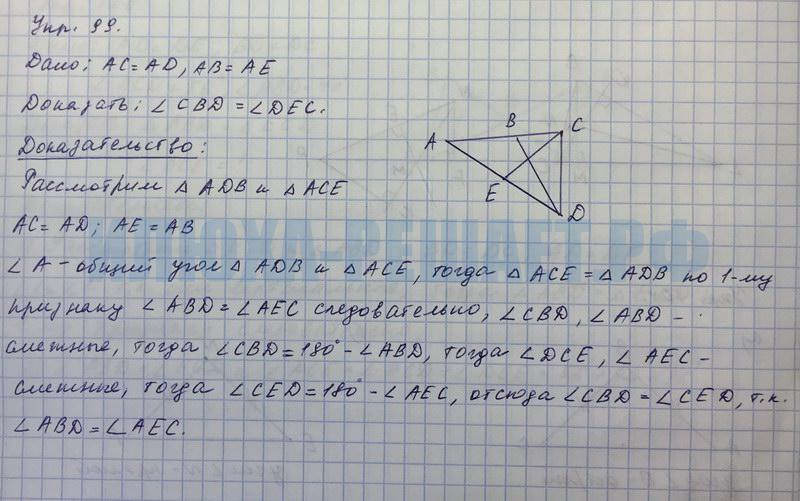 Упр. 99.
Дано: AC=AD, AB=AE
Доказать: ∠CBD=∠DEC.
Доказательство:
Рассмотрим △ADB и △ACE
AC=AD; AE=AB
∠A-общий угол △ADB и △ACE, тогда △ACE=△ADB по 1-му
признаку ∠ABD=∠AEC следовательно, ∠CBD, ∠ABD-
смежные, тогда ∠CBD=180°-∠ABD, тогда ∠DCE, ∠AEC-
смежные, тогда ∠CED=180°-∠AEC, отсюда ∠CBD=∠CED, т.к.
∠ABD=∠AEC.
A
B
C
E
D